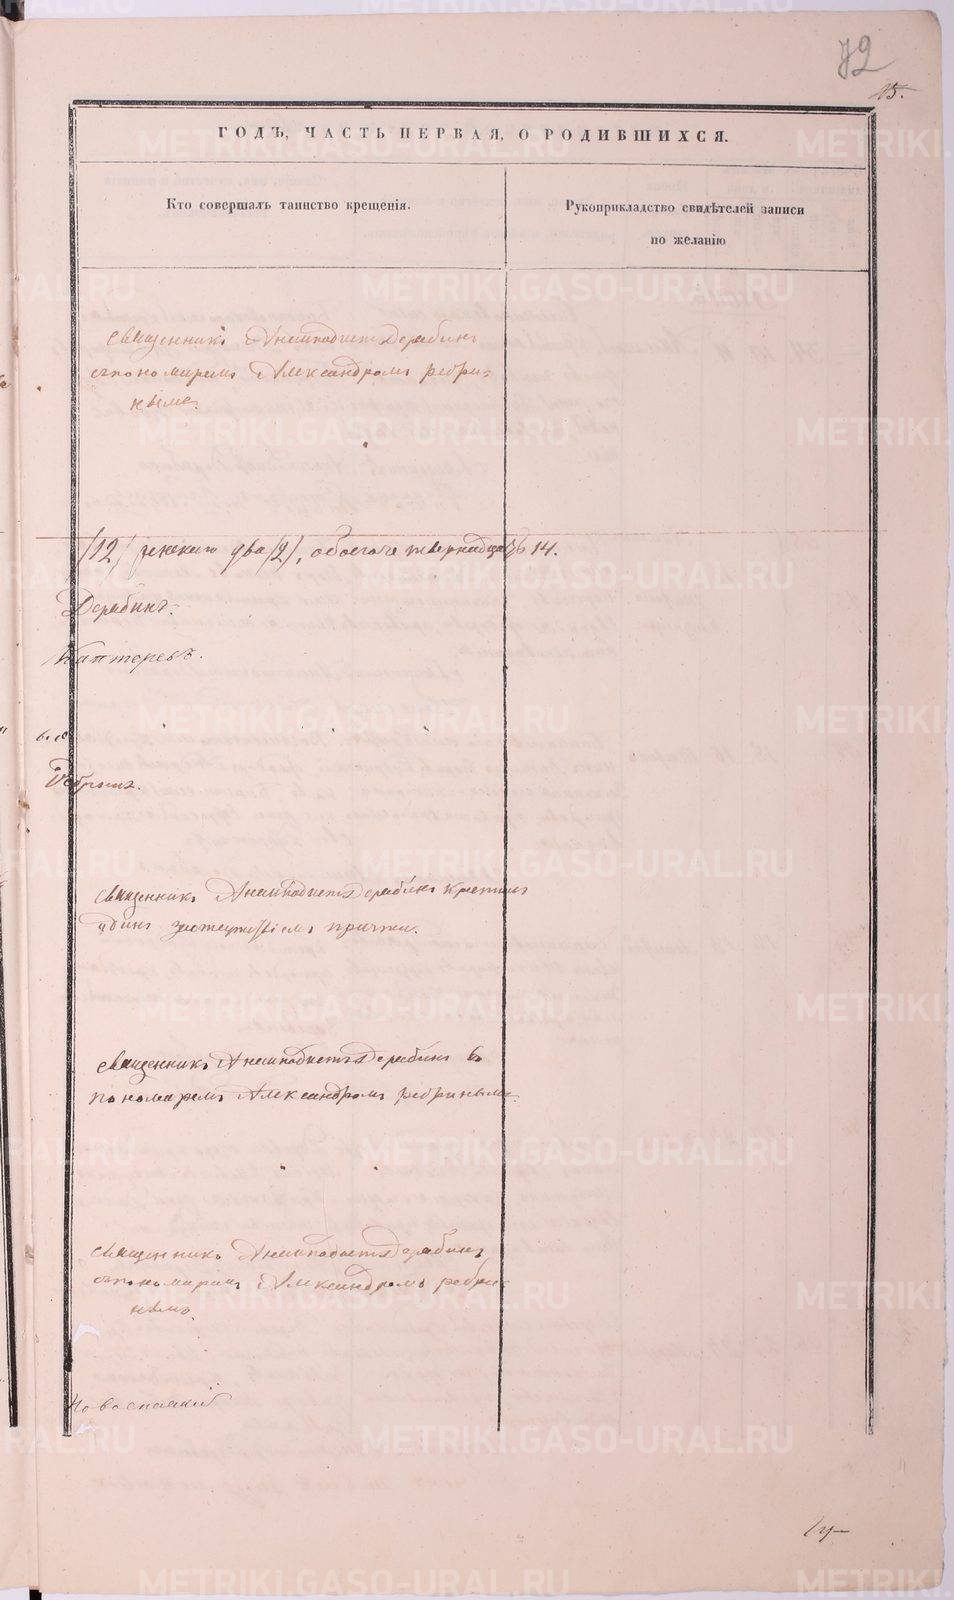 72
15.
ГОДЪ, ЧАСТЬ ПЕРВАЯ, О РОДИВШИХСЯ.
Кто совершалъ таинство крещенія.
Рукоприкладство свидѣтелей записи
по желанію
священникъ Анемподистъ Дерябинъ
съ пономаремъ Александромъ Ребри-
нымъ.
/12/ женскаго два /2/, обоего четырнадцать 14.
Дерябинъ.
Каптеревъ.
Ребринъ.
священникъ Анемподистъ Дерябинъ крестилъ
одинъ
священникъ Анемподистъ Дерябинъ съ
пономаремъ Александромъ Ребринымъ.
священникъ Анемподистъ Дерябинъ
съ пономаремъ Александромъ Ребри-
нымъ.
Новоспасскій
METRIKI.GASO-URAL.RU